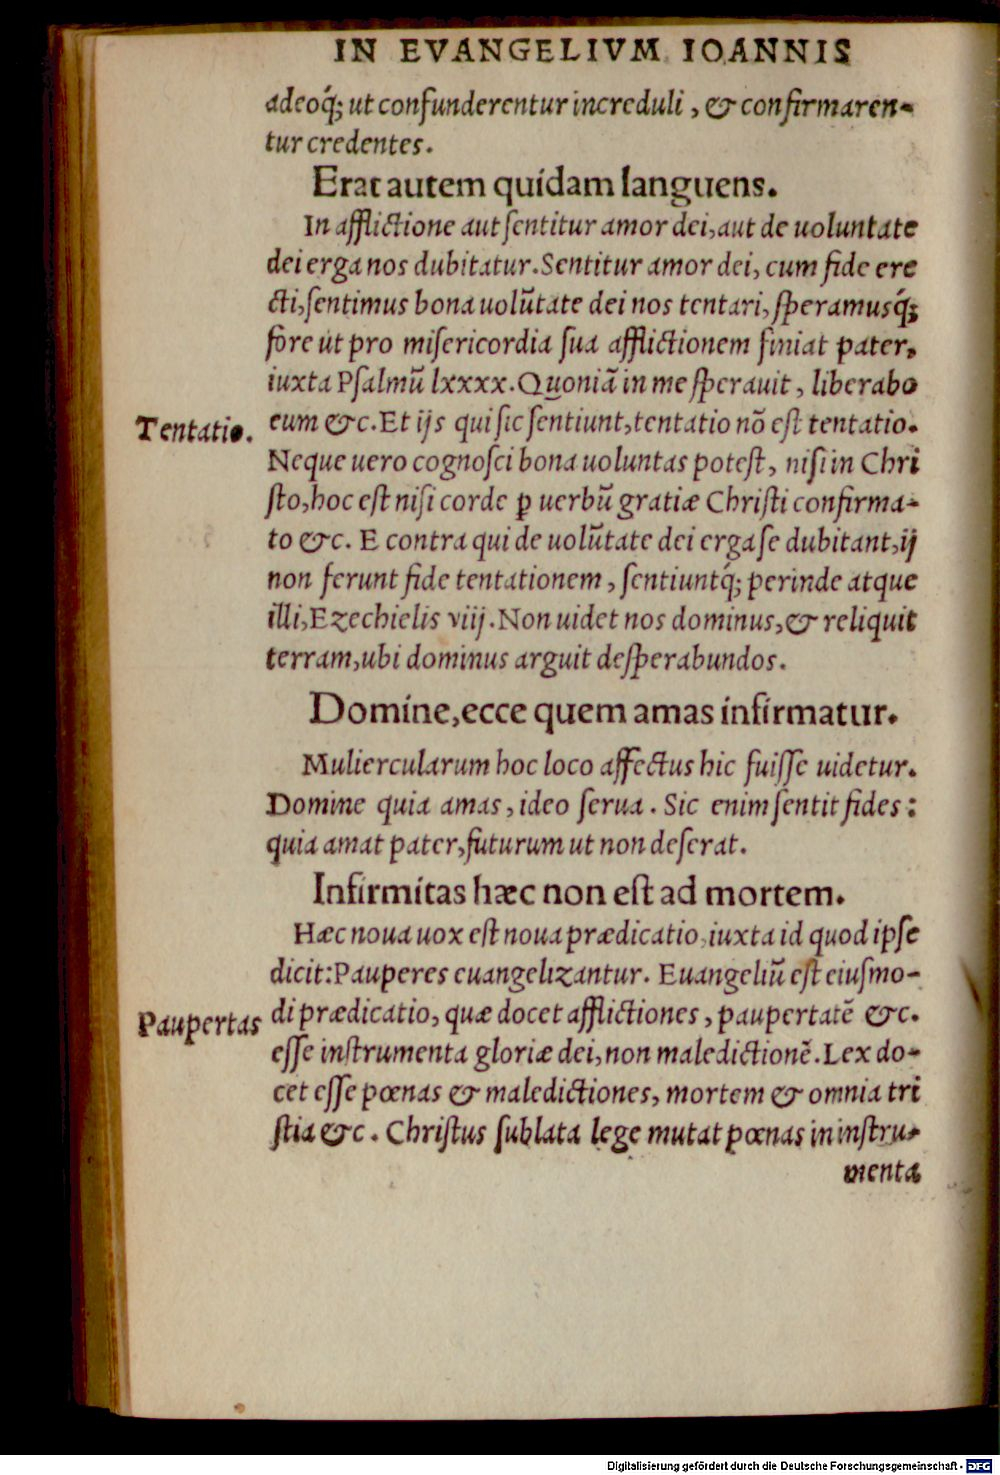 IN EVANGELIVM IOANNIS
adeoq́; ut confunderentur increduli, & confirmaren-
tur credentes.
Erat autem quidam languens.
In afflictione aut sentitur amor dei, aut de uoluntate
dei erga nos dubitatur. Sentitur amor dei, cum fide ere
cti, sentimus bona uolũtate dei nos tentari, speramusq́;
fore ut pro misericordia sua afflictionem finiat pater,
iuxta Psalmũ lxxxx. Quoniã in me sperauit, liberabo
Tentatio.
eum &c. Et ijs qui sic sentiunt, tentatio nõ est tentatio.
Neque uero cognosci bona uoluntas potest, nisi in Chri
sto, hoc est nisi corde ꝑ uerbũ gratiæ Christi confirma-
to &c. E contra qui de uolũtate dei erga se dubitant, ij
non ferunt fide tentationem, sentiuntq́; perinde atque
illi, Ezechielis viij. Non uidet nos dominus, & reliquit
terram, ubi dominus arguit desperabundos.
Domine, ecce quem amas infirmatur.
Muliercularum hoc loco affectus hic fuisse uidetur.
Domine quia amas, ideo serua. Sic enim sentit fides:
quia amat pater, futurum ut non deserat.
Infirmitas hæc non est ad mortem.
Hæc noua uox est noua prædicatio, iuxta id quod ipse
dicit: Pauperes euangelizantur. Euangeliũ est eiusmo-
Paupertas
di prædicatio, quæ docet afflictiones, paupertatẽ &c.
esse instrumenta gloriæ dei, non maledictionẽ. Lex do-
cet esse pœnas & maledictiones, mortem & omnia tri
stia &c. Christus sublata lege mutat pœnas in instru-
menta
Digitalisierung gefördert durch die Deutsche Forschungsgemeinschaft - DFG